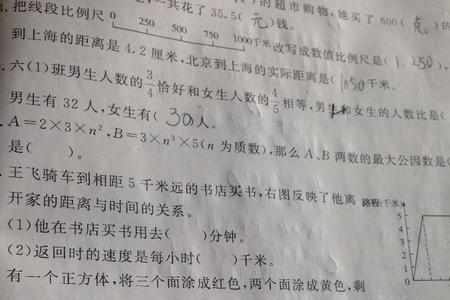 一共花了35.5(元)钱。
的超市购物,她买了600(克)的
4.把线段比例尺 0 250 500 750 1000千米 改写成数值比例尺是(
到上海的距离是4.2厘米,北京到上海的实际距离是(1050千米。
.六(1)班男生人数的3/4恰好和女生人数的4/5相等,男生和女生的人数比是(
男生有32人,女生有(30人。
.A=2×3×n²,B=3×n³×5(n为质数),那么A、B两数的最大公因数是(
是( )。
.王飞骑车到相距5千米远的书店买书,右图反映了他离
开家的距离与时间的关系。
路程(千米)
5
4
3
2
1
0
(1)他在书店买书用去( )分钟。
(2)返回时的速度是每小时( )千米。
有一个正方体,将三个面涂成红色,两个面涂成黄色,剩